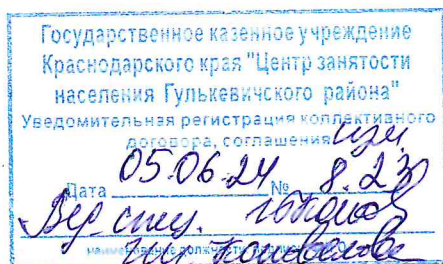 Государственное казенное учреждение
Краснодарского края "Центр занятости
населения Гулькевичского района"
Уведомительная регистрация коллективного
договора, соглашения изм.
Дата 05.06.24 № 8.23
Вед. спец.
наименование должности